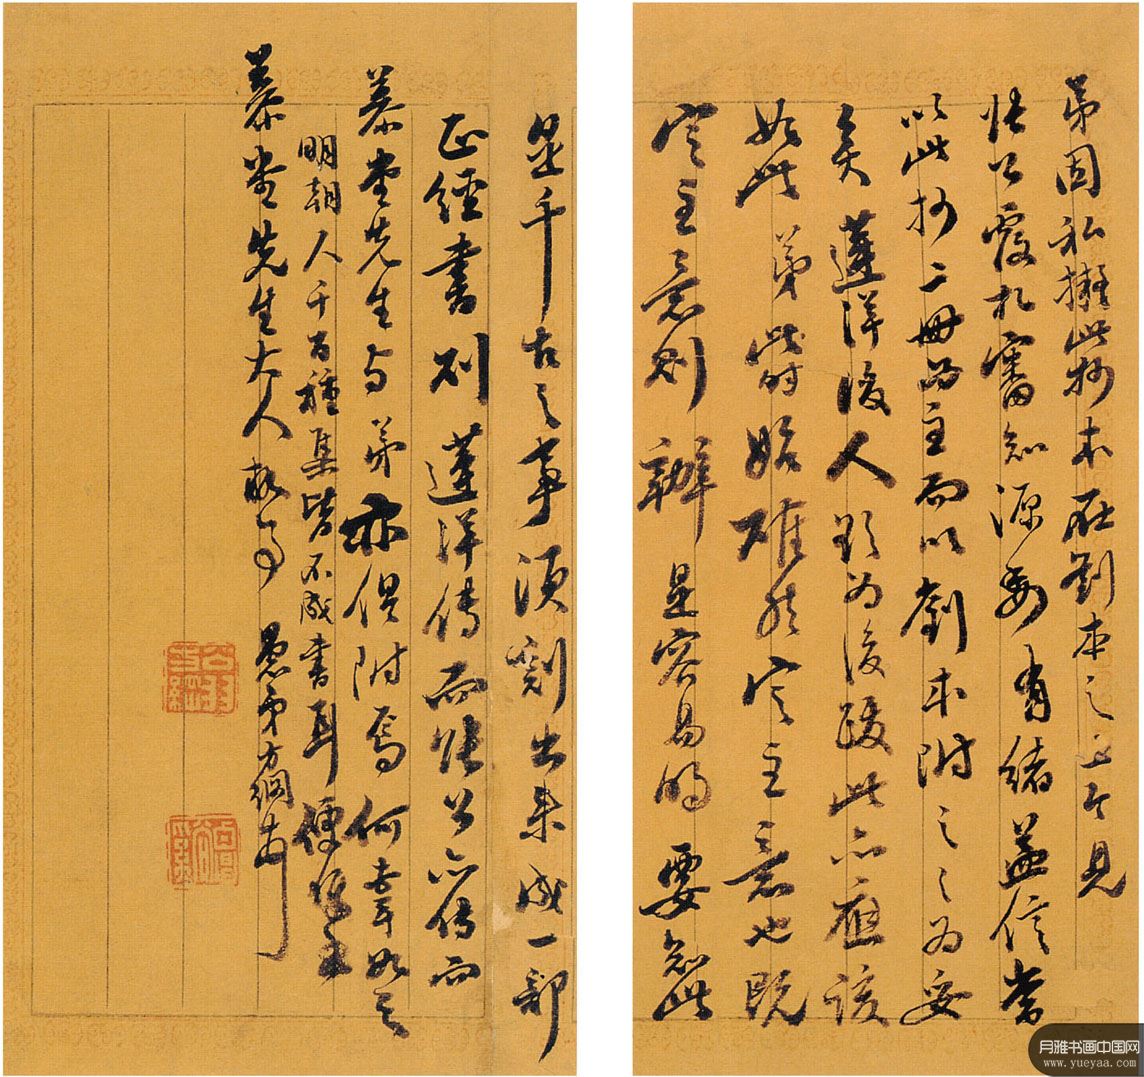 弟固私擬此抄本在刻本之上今見
張公覆札審知源委有緒益信當
以此抄二冊為主而以刻本附之之為妥
矣蓮洋後人跋為後跋此亦應該
如此弟此時始確然定主意也既
定主意則辦是容易的要知此
是千古之事須刻出來成一部
正經書則蓮洋傳而張公亦傳而
慕堂先生与弟亦俱附焉何幸如之
明朝人千百種集皆不成書耳
慕堂先生大人 愚弟方綱頓
月雅书画中国网
www.yueyaa.com